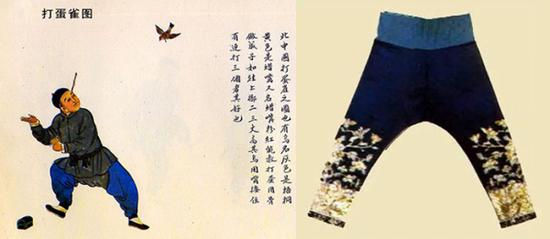 打蛋雀图
此中國打蛋雀之圖也有鳥名灰色是梧桐
黄色是蜡嘴又名蜡嘴粉紅能教打蛋用骨
做蛋子如往上擲二三丈高其鳥用嘴接住
有連打三個者真好也